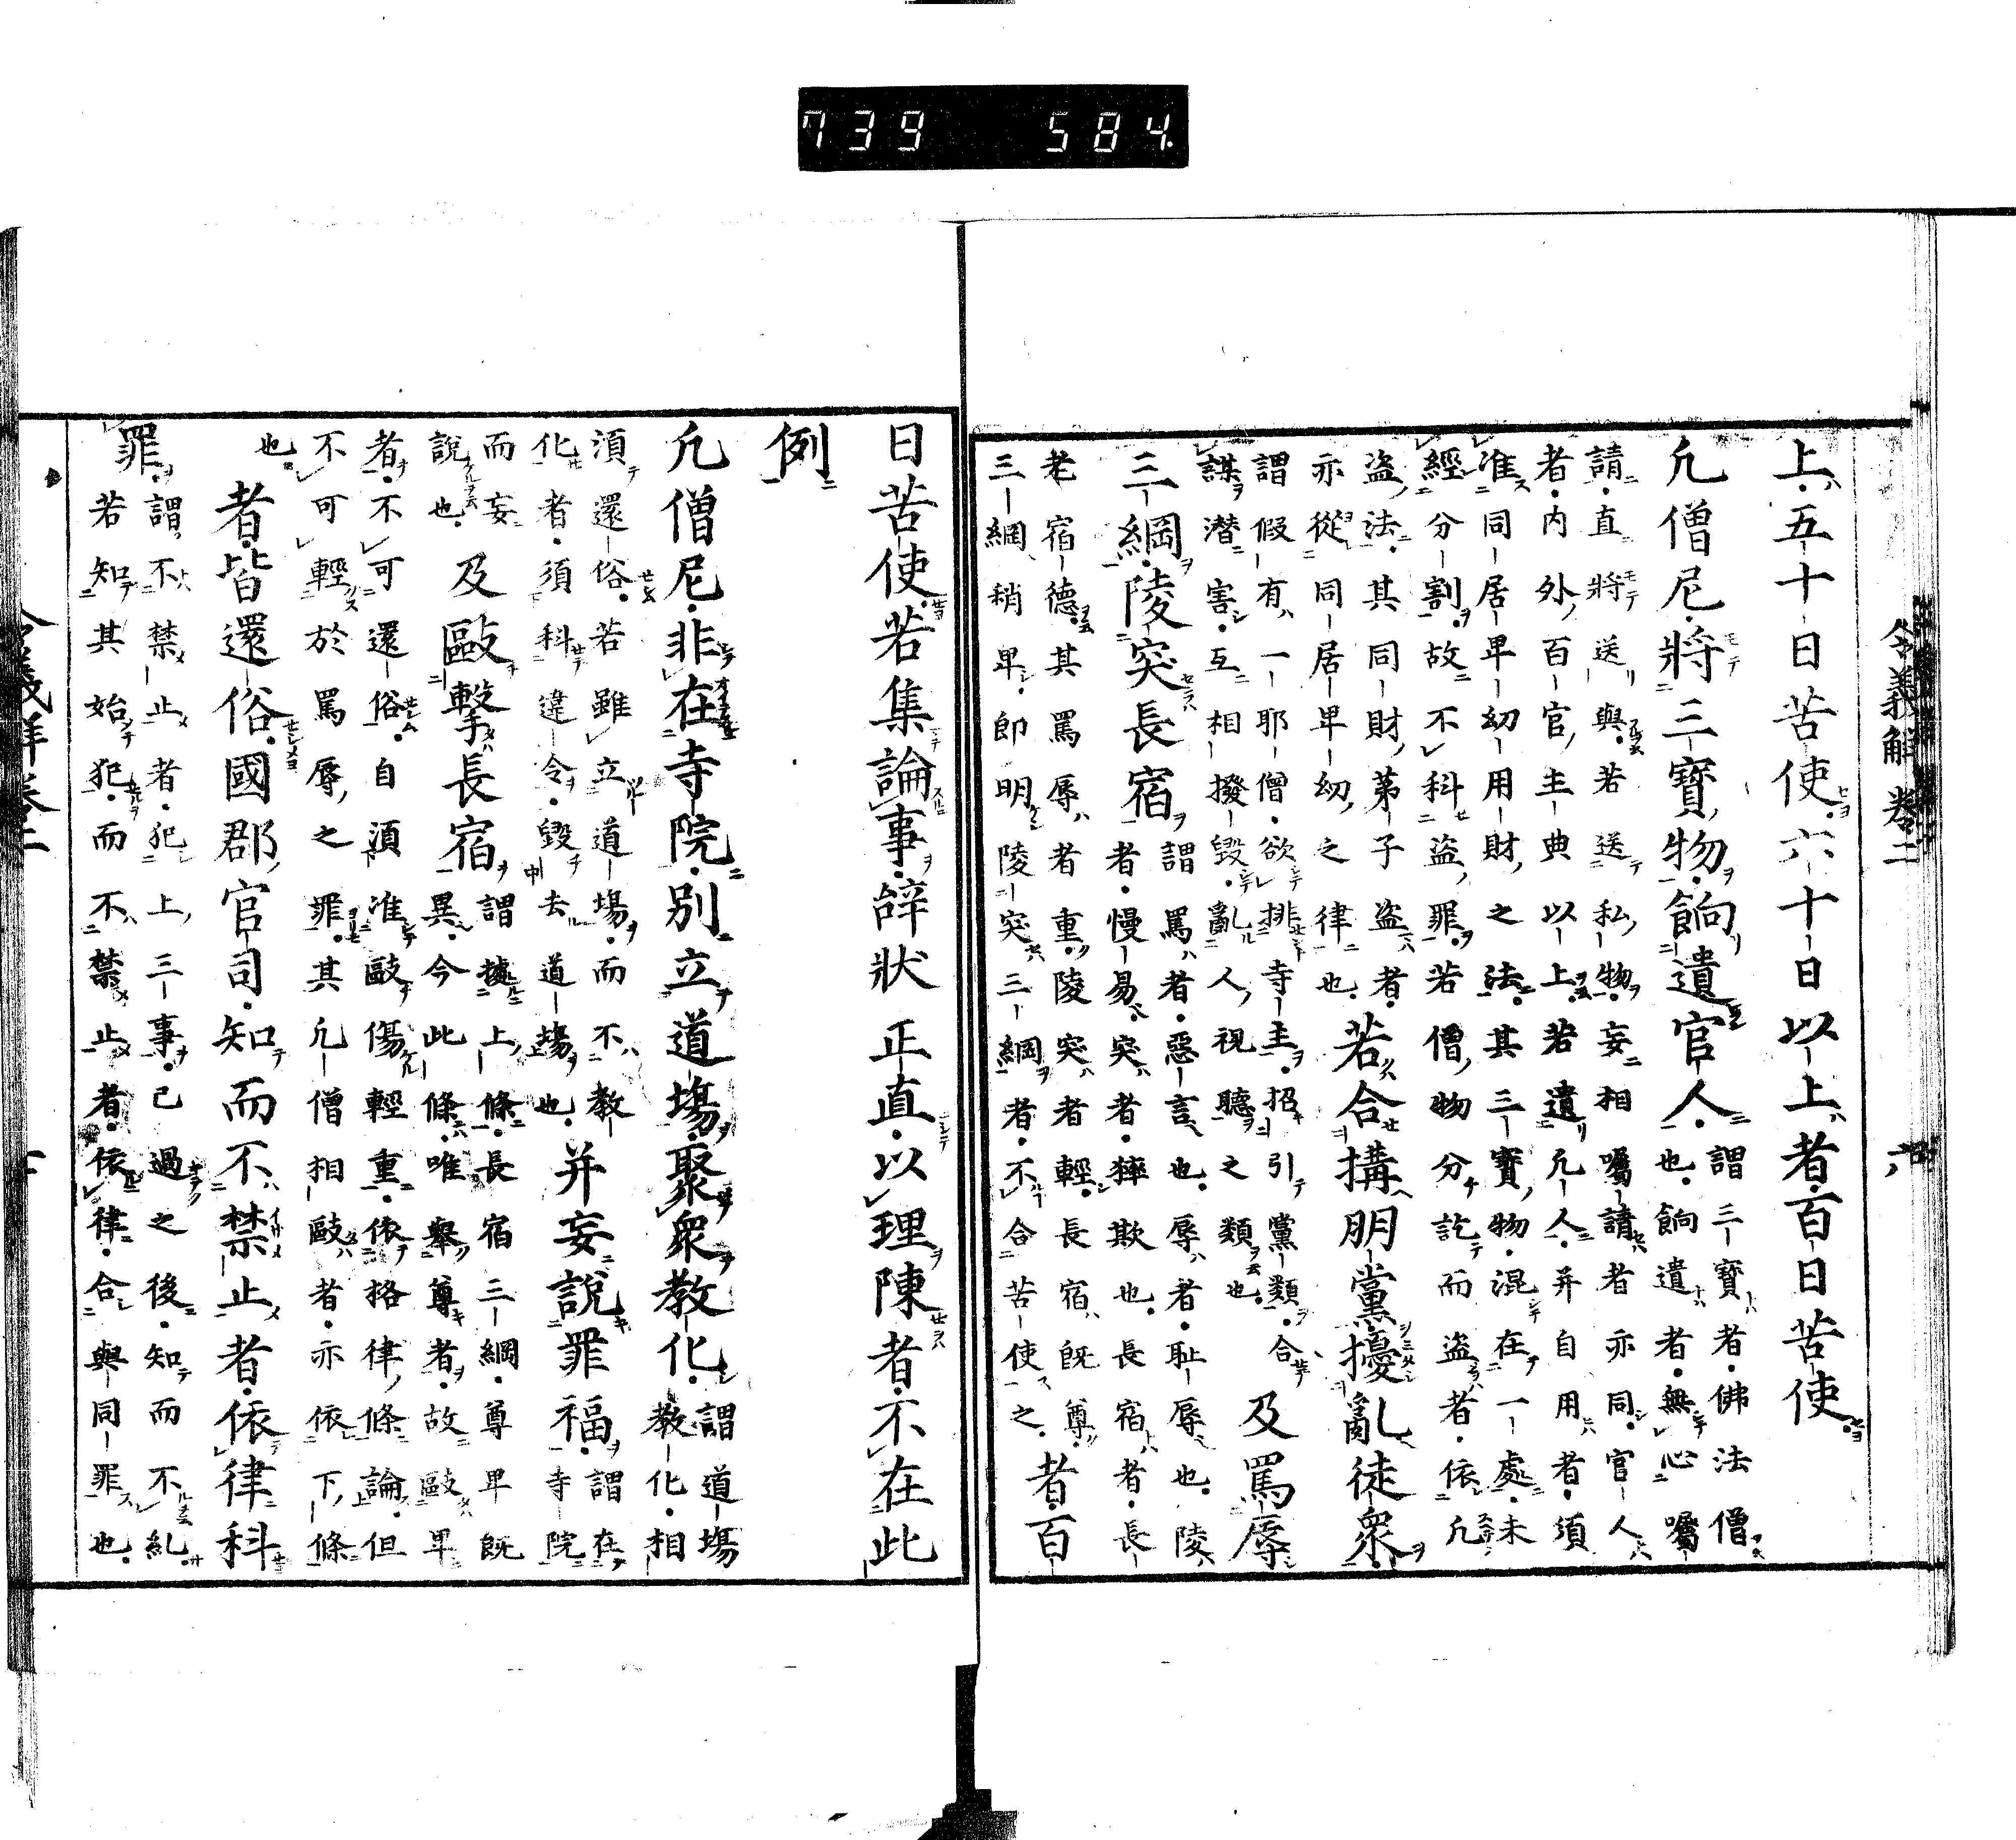 令義解卷二 六
上五十日苦使六十日以上者百日苦使
凡僧尼將三寶物餉遺官人
謂三寶者佛法僧
也餉遺者無心囑
請直將送與若送私物妄相囑請者亦同官人
者內外百官主典以上若遺凡人并自用者須
准同居卑幼用財之法其三寶物混在一處未
經分割故不科盜罪若僧物分訖而盜者依凡
盜法其同財弟子盜者
亦從同居卑幼之律也
若合搆朋黨擾亂徒衆
謂假有一耶僧欲排寺主招引黨類合
謀潜害互相撥毀亂人視聽之類也
及罵辱
三綱陵突長宿
謂罵者惡言也辱者耻辱也陵
者慢易突者欺也長宿者長
老宿德其罵辱者重陵突者輕長宿既尊
三綱稍卑即明陵突三綱者不合苦使之
者百
日苦使若集論事辭狀正直以理陳者不在此
例
凡僧尼非在寺院別立道場聚衆教化
謂道場
教化相
須還俗若雖立道場而不教
化者須科違令毀去道場也
并妄說罪福
謂在
寺院
而妄
說也
及毆擊長宿
謂據上條長宿三綱尊卑既
異今此條唯擧尊者故毆卑
者不可還俗自須准毆傷輕重依格律條論但
不可輕於罵辱之罪其凡僧相毆者亦依下條
也
者皆還俗國郡官司知而不禁止者依律科
罪
謂不禁止者犯上三事已過之後知而不糺
若知其始犯而不禁止者依律合與同罪也
739 584